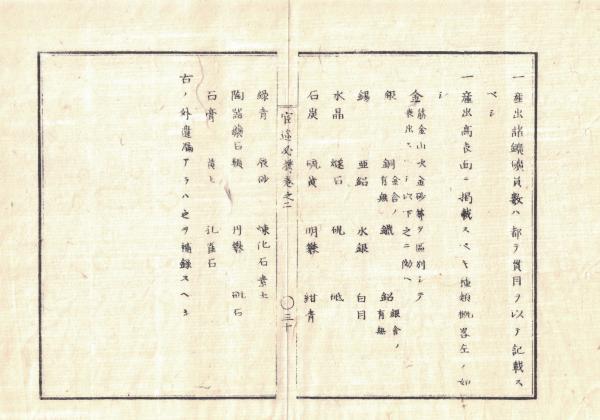 一産出諸鑛礦員数ハ都テ貫目ヲ以テ記載ス
ベシ
一産出高表面ニ掲載スベキ種類概畧左ノ如
シ
金 筋金山吹金砂等ヲ区別シテ
表出スベシ以下之ニ倣ヘ
銀 銅 金含ノ有無 鐵 鉛 銀含ノ有無
錫 亜鉛 水銀 白目
水晶 燧石 硯 砥
石炭 硫黄 明礬 紺青
官途必携巻之二 三十
緑青 辰砂 煉化石素土
陶器礦石類 丹礬 砒石
石膏 黄土 孔雀石
右ノ外遺漏アラハ之ヲ補録スヘキ